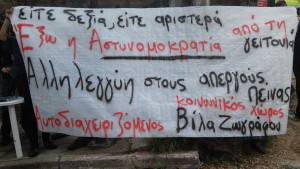 είτε δεξιά, είτε αριστερά
Έξω η Αστυνομοκρατία από τη γειτονιά
Αλληλεγγύη στους απεργούς πείνας
Αυτοδιαχειριζόμενος κοινωνικός χώρος
Βίλα Ζωγράφου